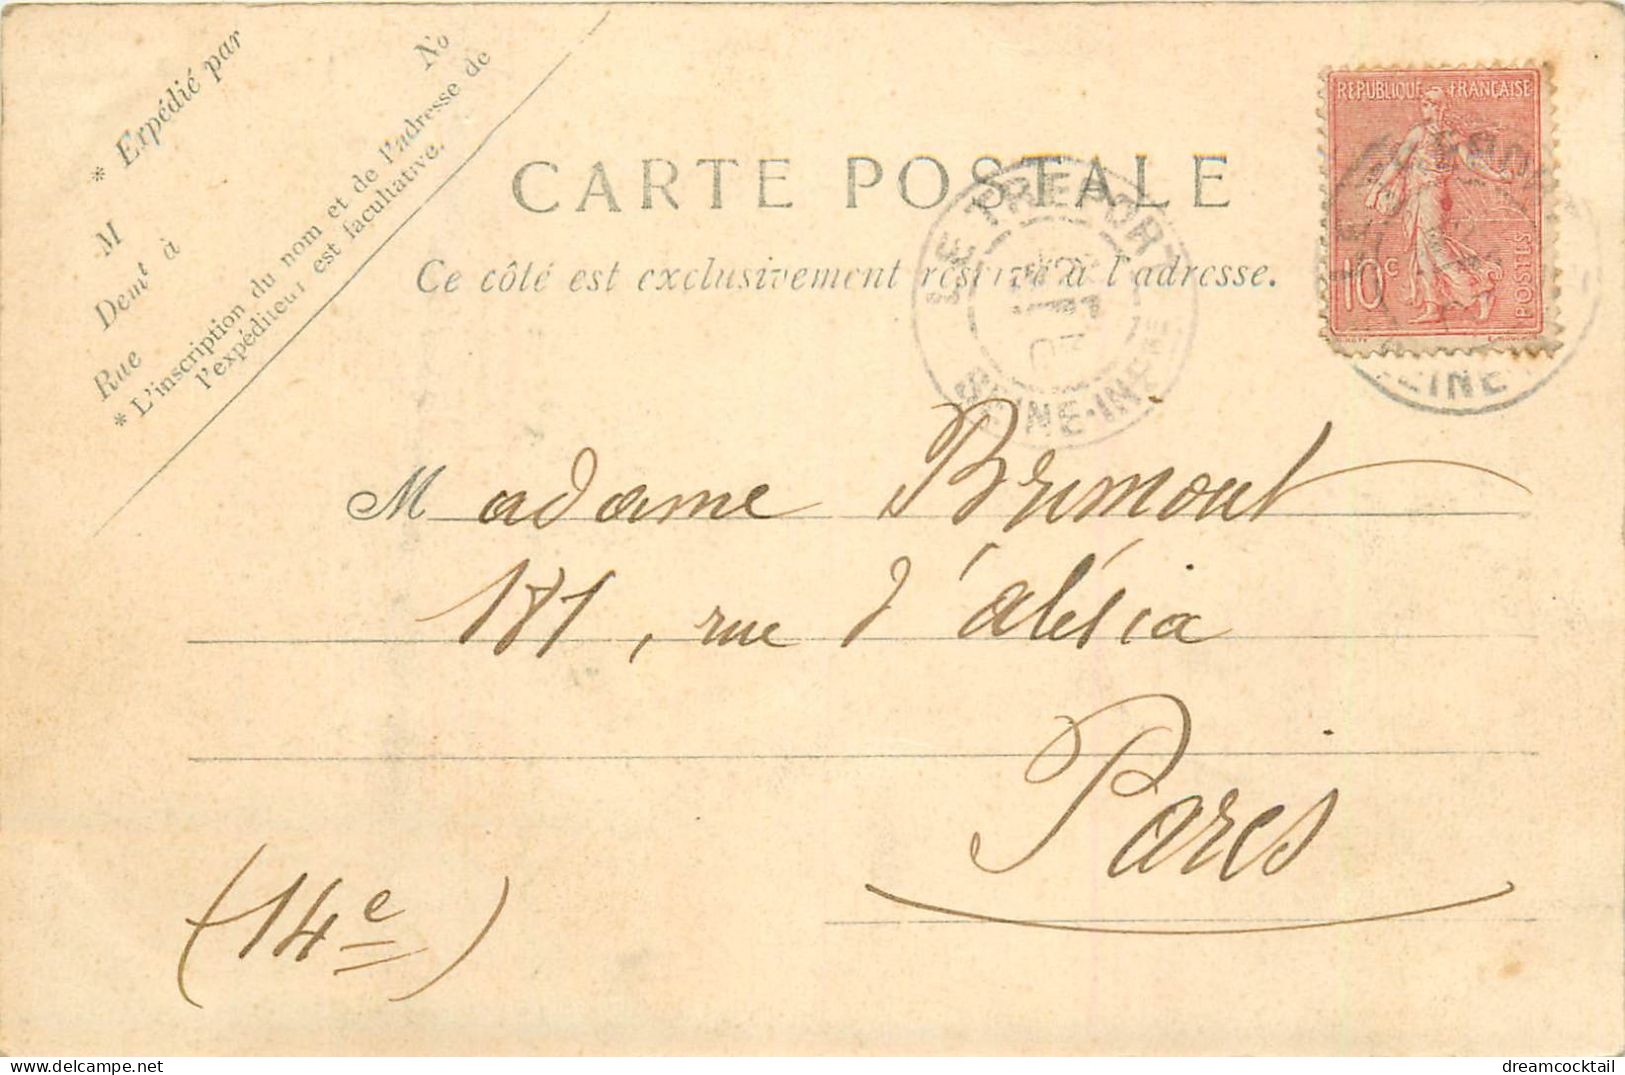 * Expédié par
M No
Demt à
Rue
* L'inscription du nom et de l'adresse de
l'expéditeur est facultative.
CARTE POSTALE
Ce côté est exclusivement réservé à l'adresse.
REPUBLIQUE FRANÇAISE
10 c
POSTES
LE TREPORT
SEINE-INFRE
Madame Brimont
181, rue d'alésia
Paris
(14e)
www.delcampe.net
dreamcocktail